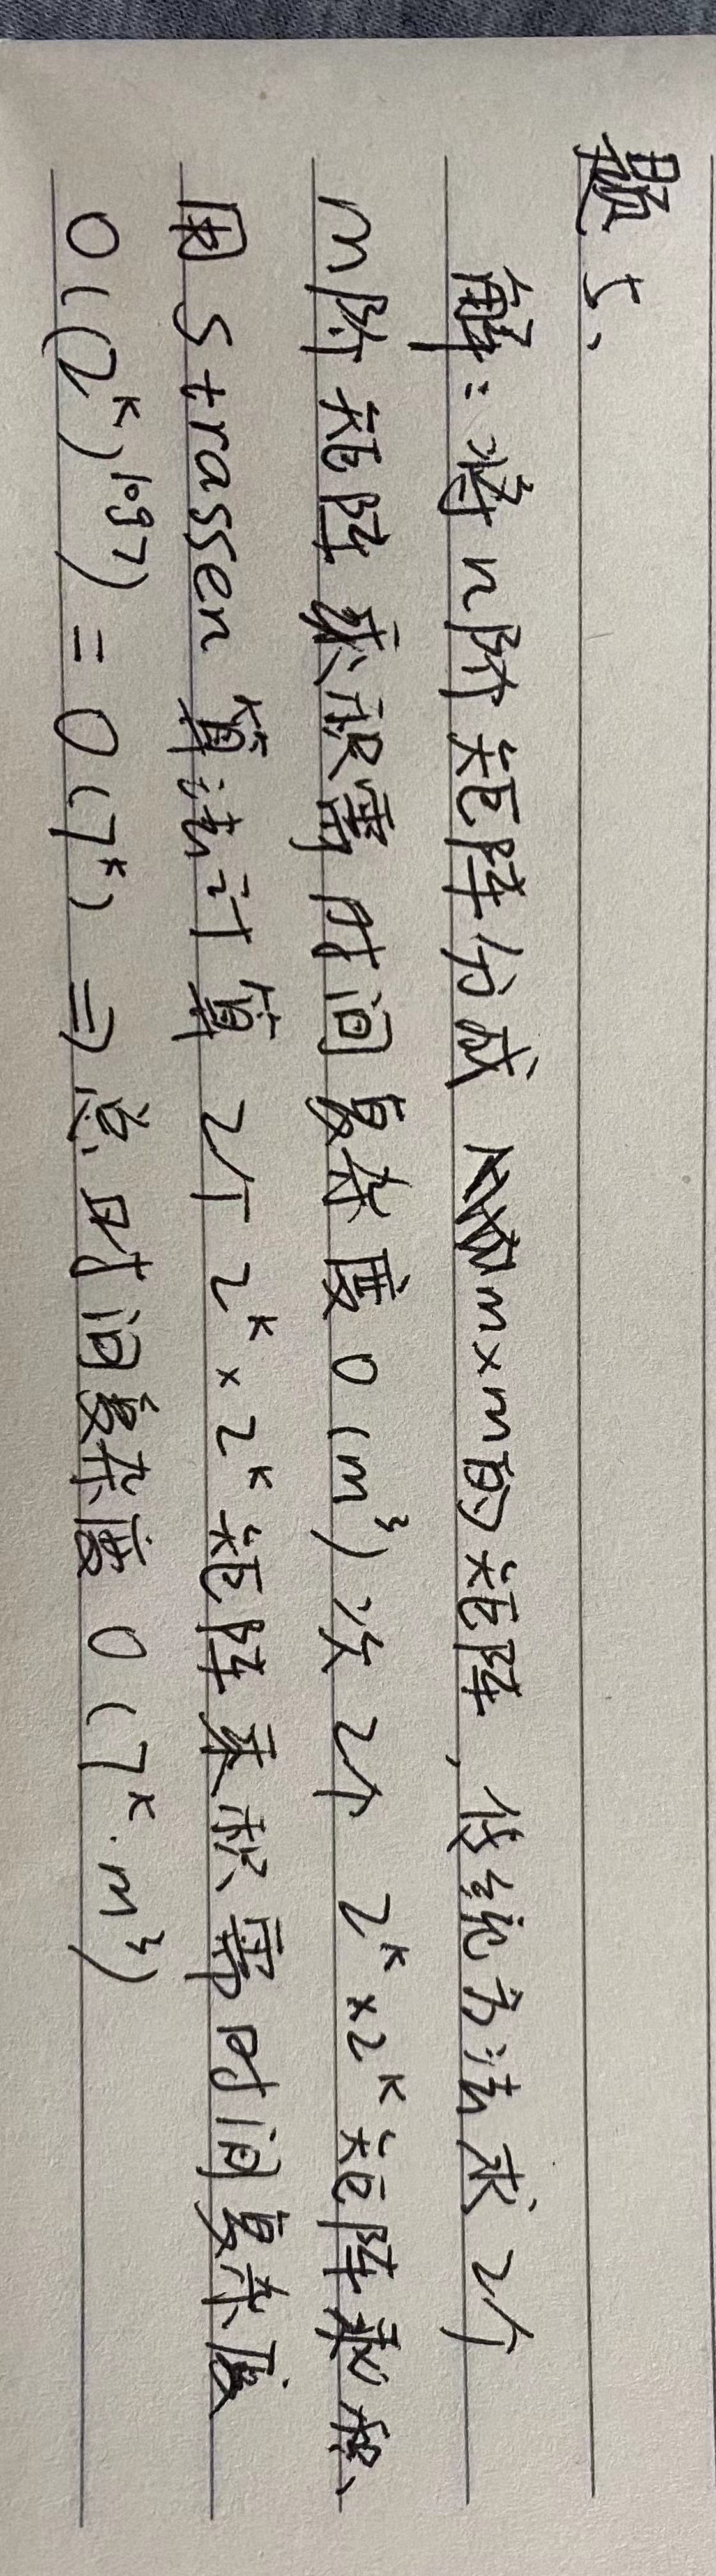 题5、
解：将n阶矩阵分成 m×m的矩阵，传统方法求2个
m阶矩阵乘积需时间复杂度O(m³)次2个 2ᵏ×2ᵏ矩阵乘积、
用Strassen算法计算 2个2ᵏ×2ᵏ矩阵乘积需时间复杂度
O((2ᵏ)^log7) = O(7ᵏ) ⇒ 总时间复杂度 O(7ᵏ·m³)